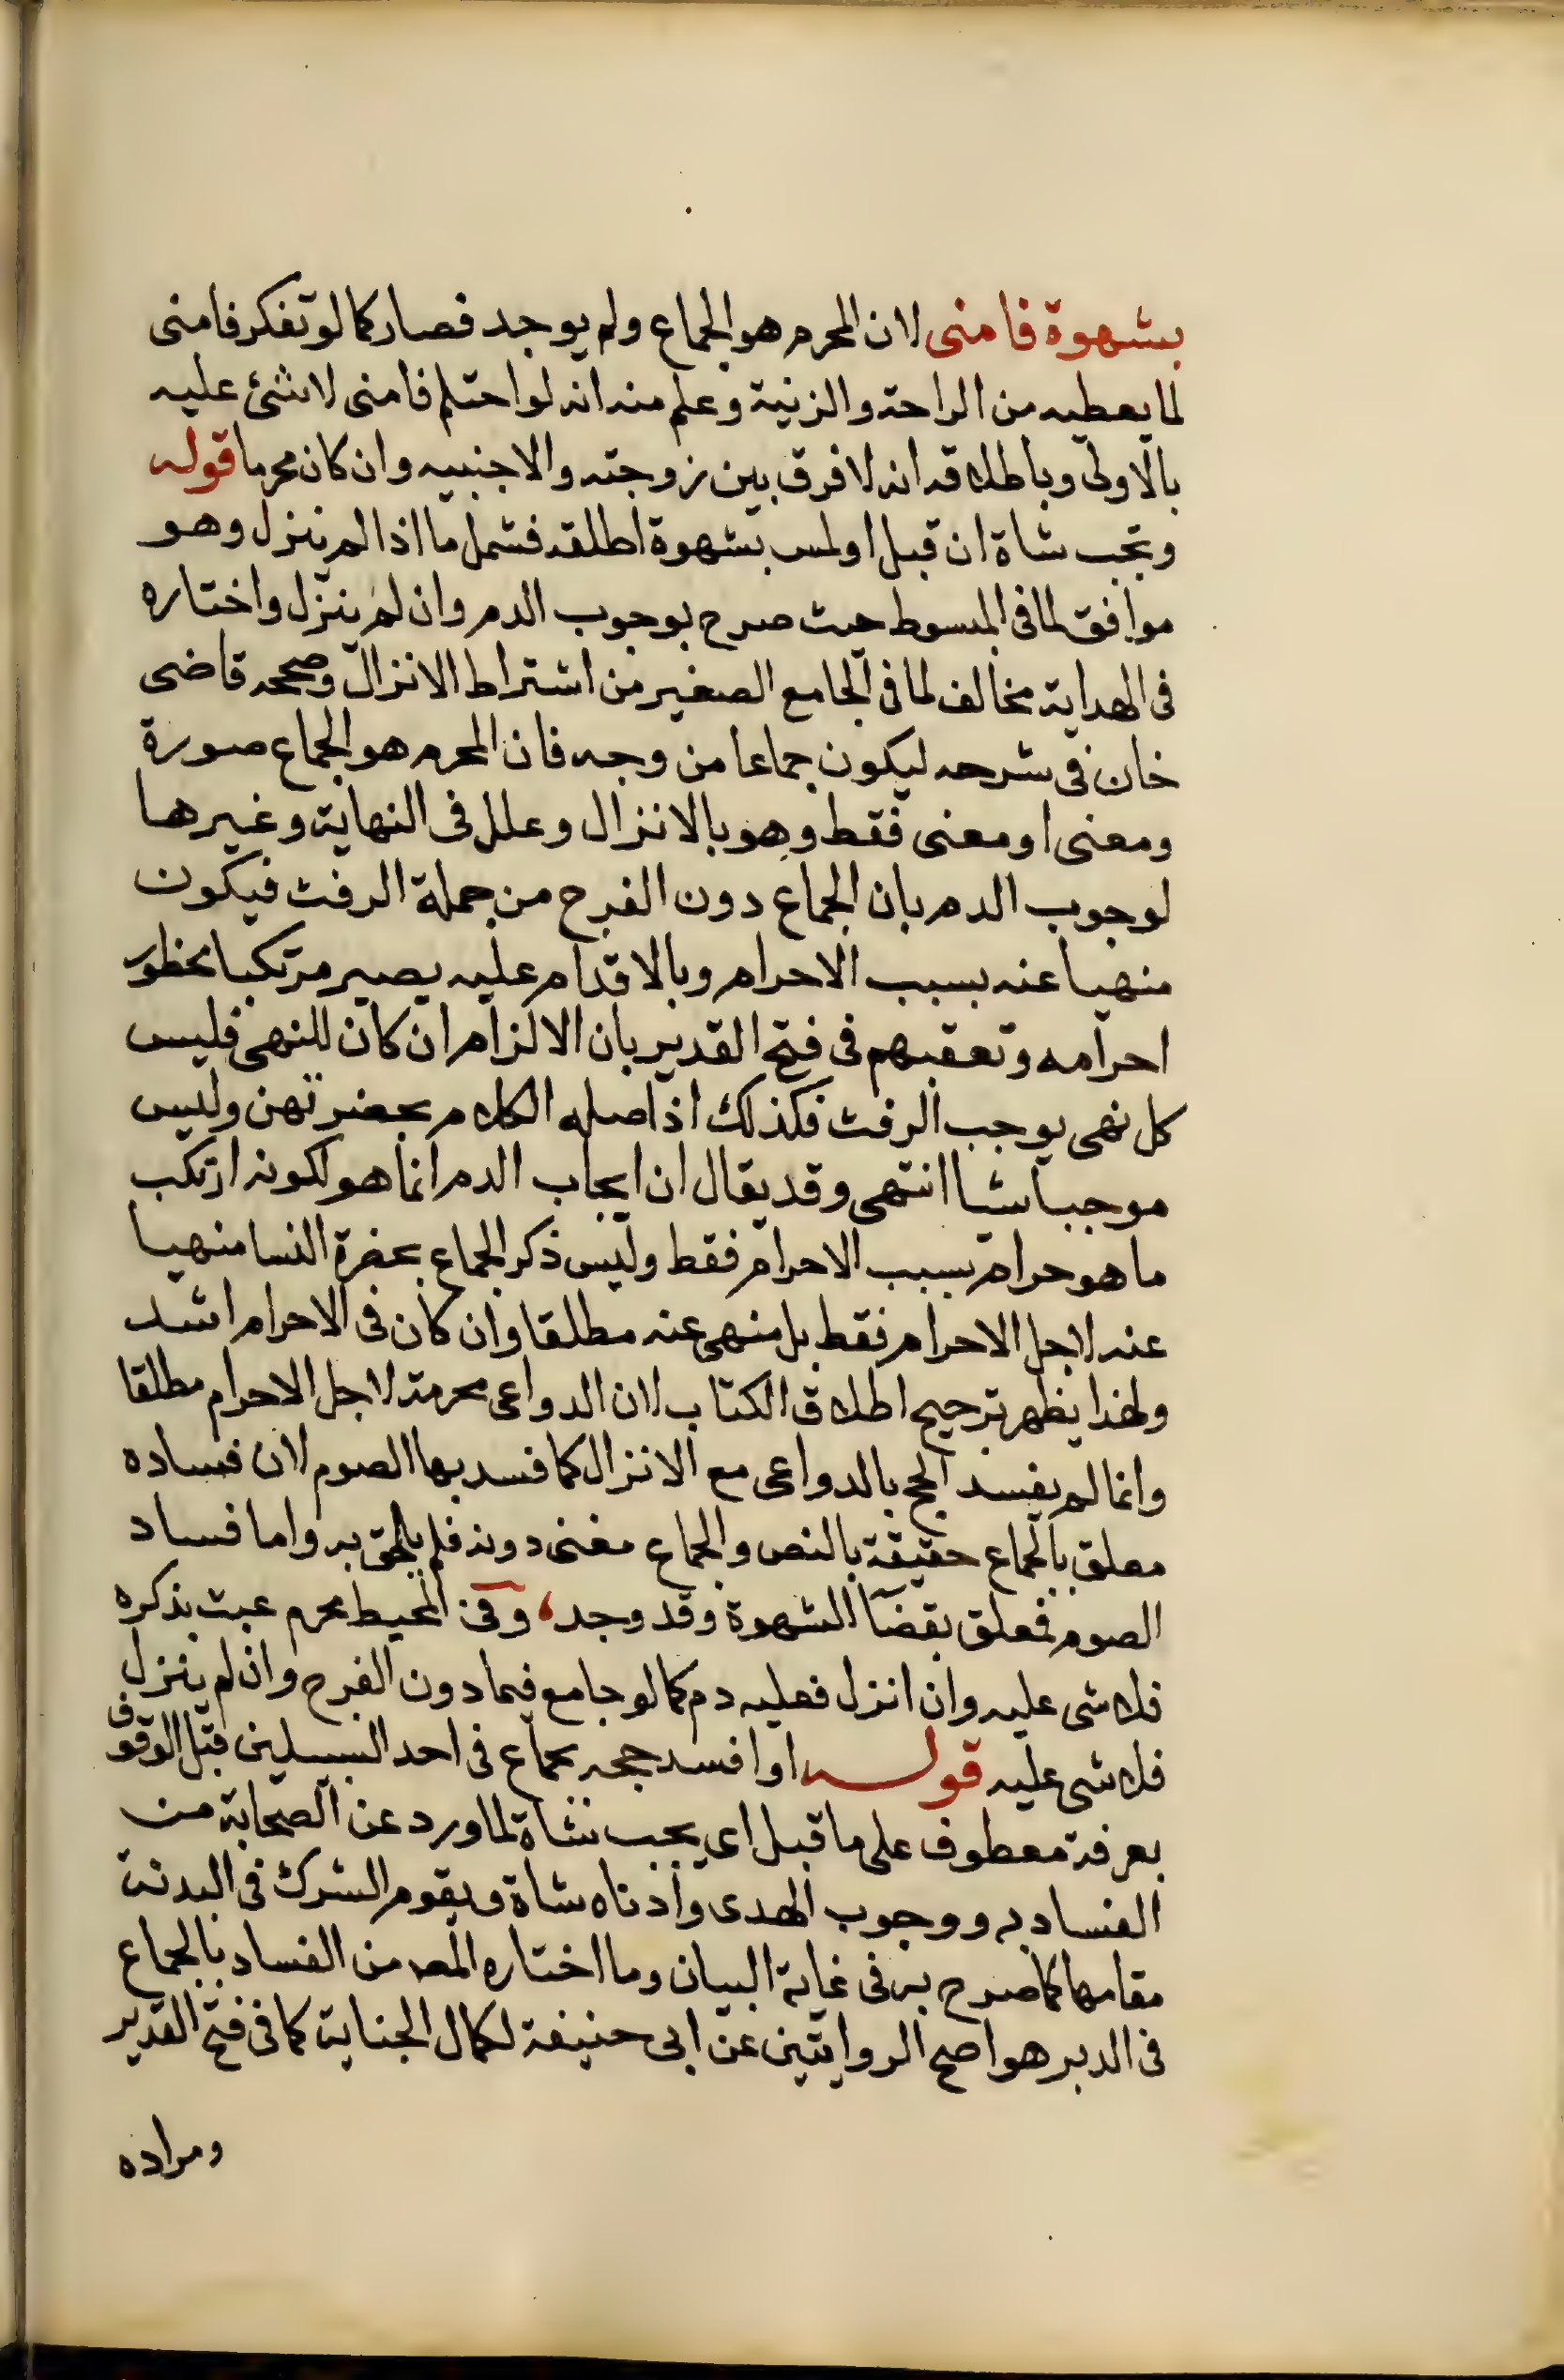 بشهوة فامنى لان المحرم هو الجماع ولم يوجد فصار كما لو تفكر فامنى
لما يعطيه من الراحة والزنية وعلم منه انه لو احتلم فامنى لا شئ عليه
بالاولى وباطلاقه انه لا فرق بين زوجته والاجنبيه وان كان محرما قوله
وتجب شاة ان قبل او لمس بشهوة اطلقه فشمل ما اذا لم ينزل وهو
موافق لما في المبسوط حيث صرح بوجوب الدم وان لم ينزل واختاره
في الهداية مخالف لما في الجامع الصغير من اشتراط الانزال وصححه قاضى
خان في شرحه ليكون جماعا من وجه فان المحرم هو الجماع صورة
ومعنى او معنى فقط وهو بالانزال وعلل في النهاية وغيرها
لوجوب الدم بان الجماع دون الفرج من جملة الرفث فيكون
منهيا عنه بسبب الاحرام وبالاقدام عليه يصير مرتكبا محظور
احرامه وتعقبهم في فتح القدير بان الالزام ان كان للنهى فليس
كل نهى يوجب الرفث فكذلك اذ اصله الكلام بحضرتهن وليس
موجبا شيا انتهى وقد يقال ان ايجاب الدم انما هو لكونه ارتكب
ما هو حرام بسبب الاحرام فقط وليس ذكر الجماع بحضرة النسا منهيا
عنه لاجل الاحرام فقط بل منهى عنه مطلقا وان كان في الاحرام اشد
ولهذا يظهر ترجيح اطلاق الكتاب لان الدواعى محرمة لاجل الاحرام مطلقا
وانما لم يفسد الحج بالدواعى مع الانزال كما فسد بها الصوم لان فساده
معلق بالجماع حقيقة بالنص والجماع معنى دونه فلم يلحق به واما فساد
الصوم فمعلق بقضآ الشهوة وقد وجد، وفى المحيط محرم عبث بذكره
فلا شى عليه وان انزل فعليه دم كما لو جامع فيما دون الفرج وان لم ينزل
فلا شى عليه قوله او افسد حجه بجماع فى احد السبيلين قبل الوقوف
بعرفة معطوف على ما قبل اى يجب شاة لما ورد عن الصحابة من
الفساد به ووجوب الهدى وادناه شاة ويقوم الشرك فى البدنة
مقامها كما صرح به فى غاية البيان وما اختاره المصـ من الفساد بالجماع
فى الدبر هو اصح الروايتين عن ابى حنيفة لكمال الجناية كما فى فتح القدير
ومراده